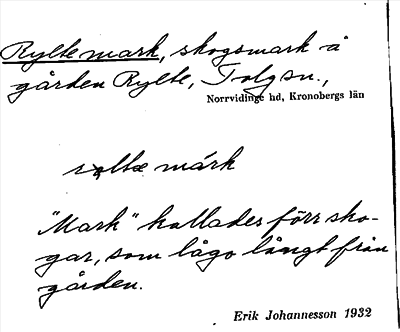 Ryltemark, skogsmark å
gården Rylte, Tolg sn.,
Norrvidinge hd, Kronobergs län
ryltæ márk
"Mark" kallades förr sko-
gar, som lågo långt från
gården.
Erik Johannesson 1932